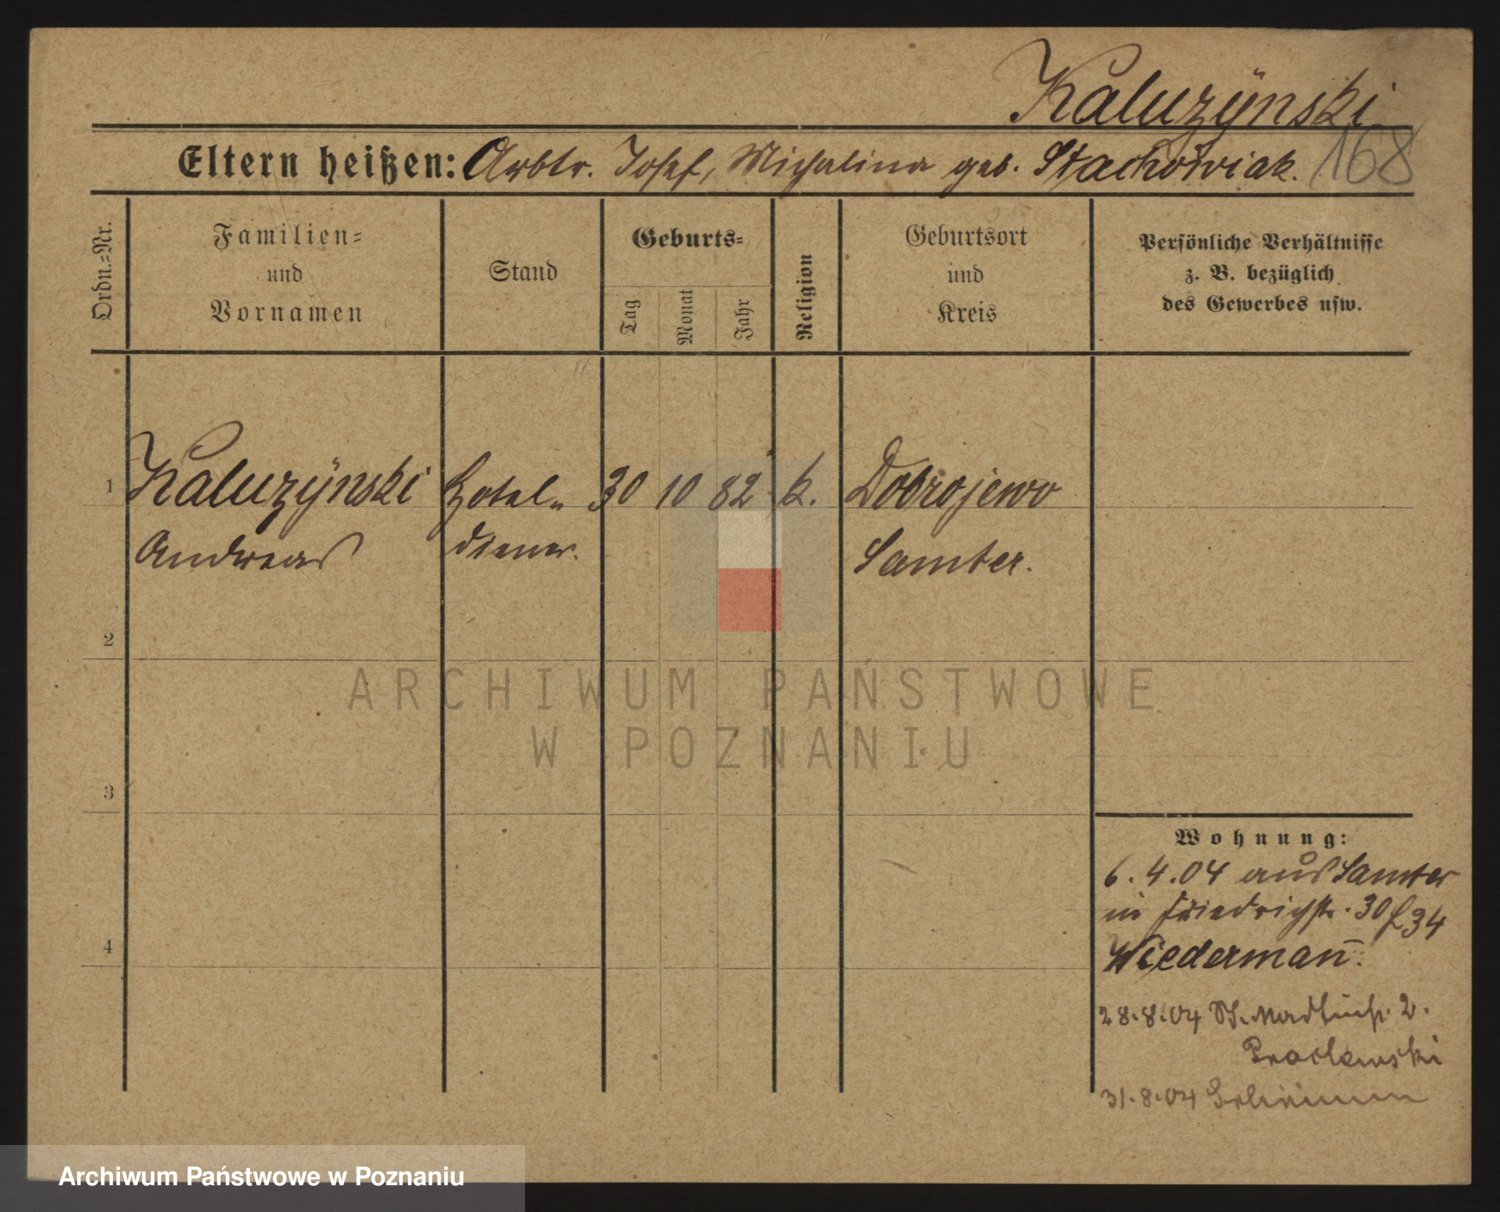 Kaluzÿnski
Eltern heißen: Arbtr. Josef, Michalina geb. Stachowiak. 168
Ordn.-Nr.
Familien-
und
Vornamen
Stand
Geburts-
Tag
Monat
Jahr
Religion
Geburtsort
und
Kreis
Persönliche Verhältnisse
z. B. bezüglich
des Gewerbes usw.
1 Kaluzÿnski Hotel- 30 10 82 k. Dobrojewo
Andreas diener. Samter.
2
3
4
ARCHIWUM PAŃSTWOWE
W POZNANIU
Wohnung:
6.4.04 aus Samter
in Friedrichstr. 30 34
Wiedermañ.
28.8.04 2.
31.8.04
Archiwum Państwowe w Poznaniu